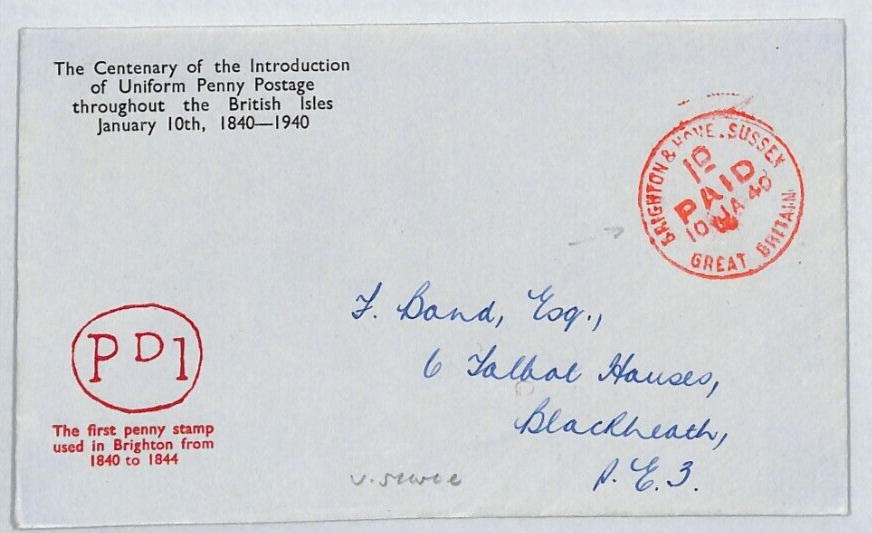 The Centenary of the Introduction
of Uniform Penny Postage
throughout the British Isles
January 10th, 1840—1940
BRIGHTON & HOVE. SUSSEX
PAID
10 JA 40
GREAT BRITAIN
F. Band, Esq.,
6 Talbot Houses,
Blackheath,
S.E.3.
PD1
The first penny stamp
used in Brighton from
1840 to 1844